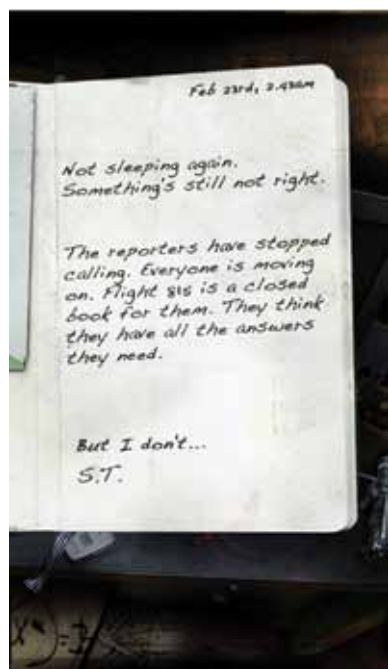 Feb 23rd, 2.43am
Not sleeping again.
Something's still not right.
The reporters have stopped
calling. Everyone is moving
on. Flight 815 is a closed
book for them. They think
they have all the answers
they need.
But I don't...
S.T.